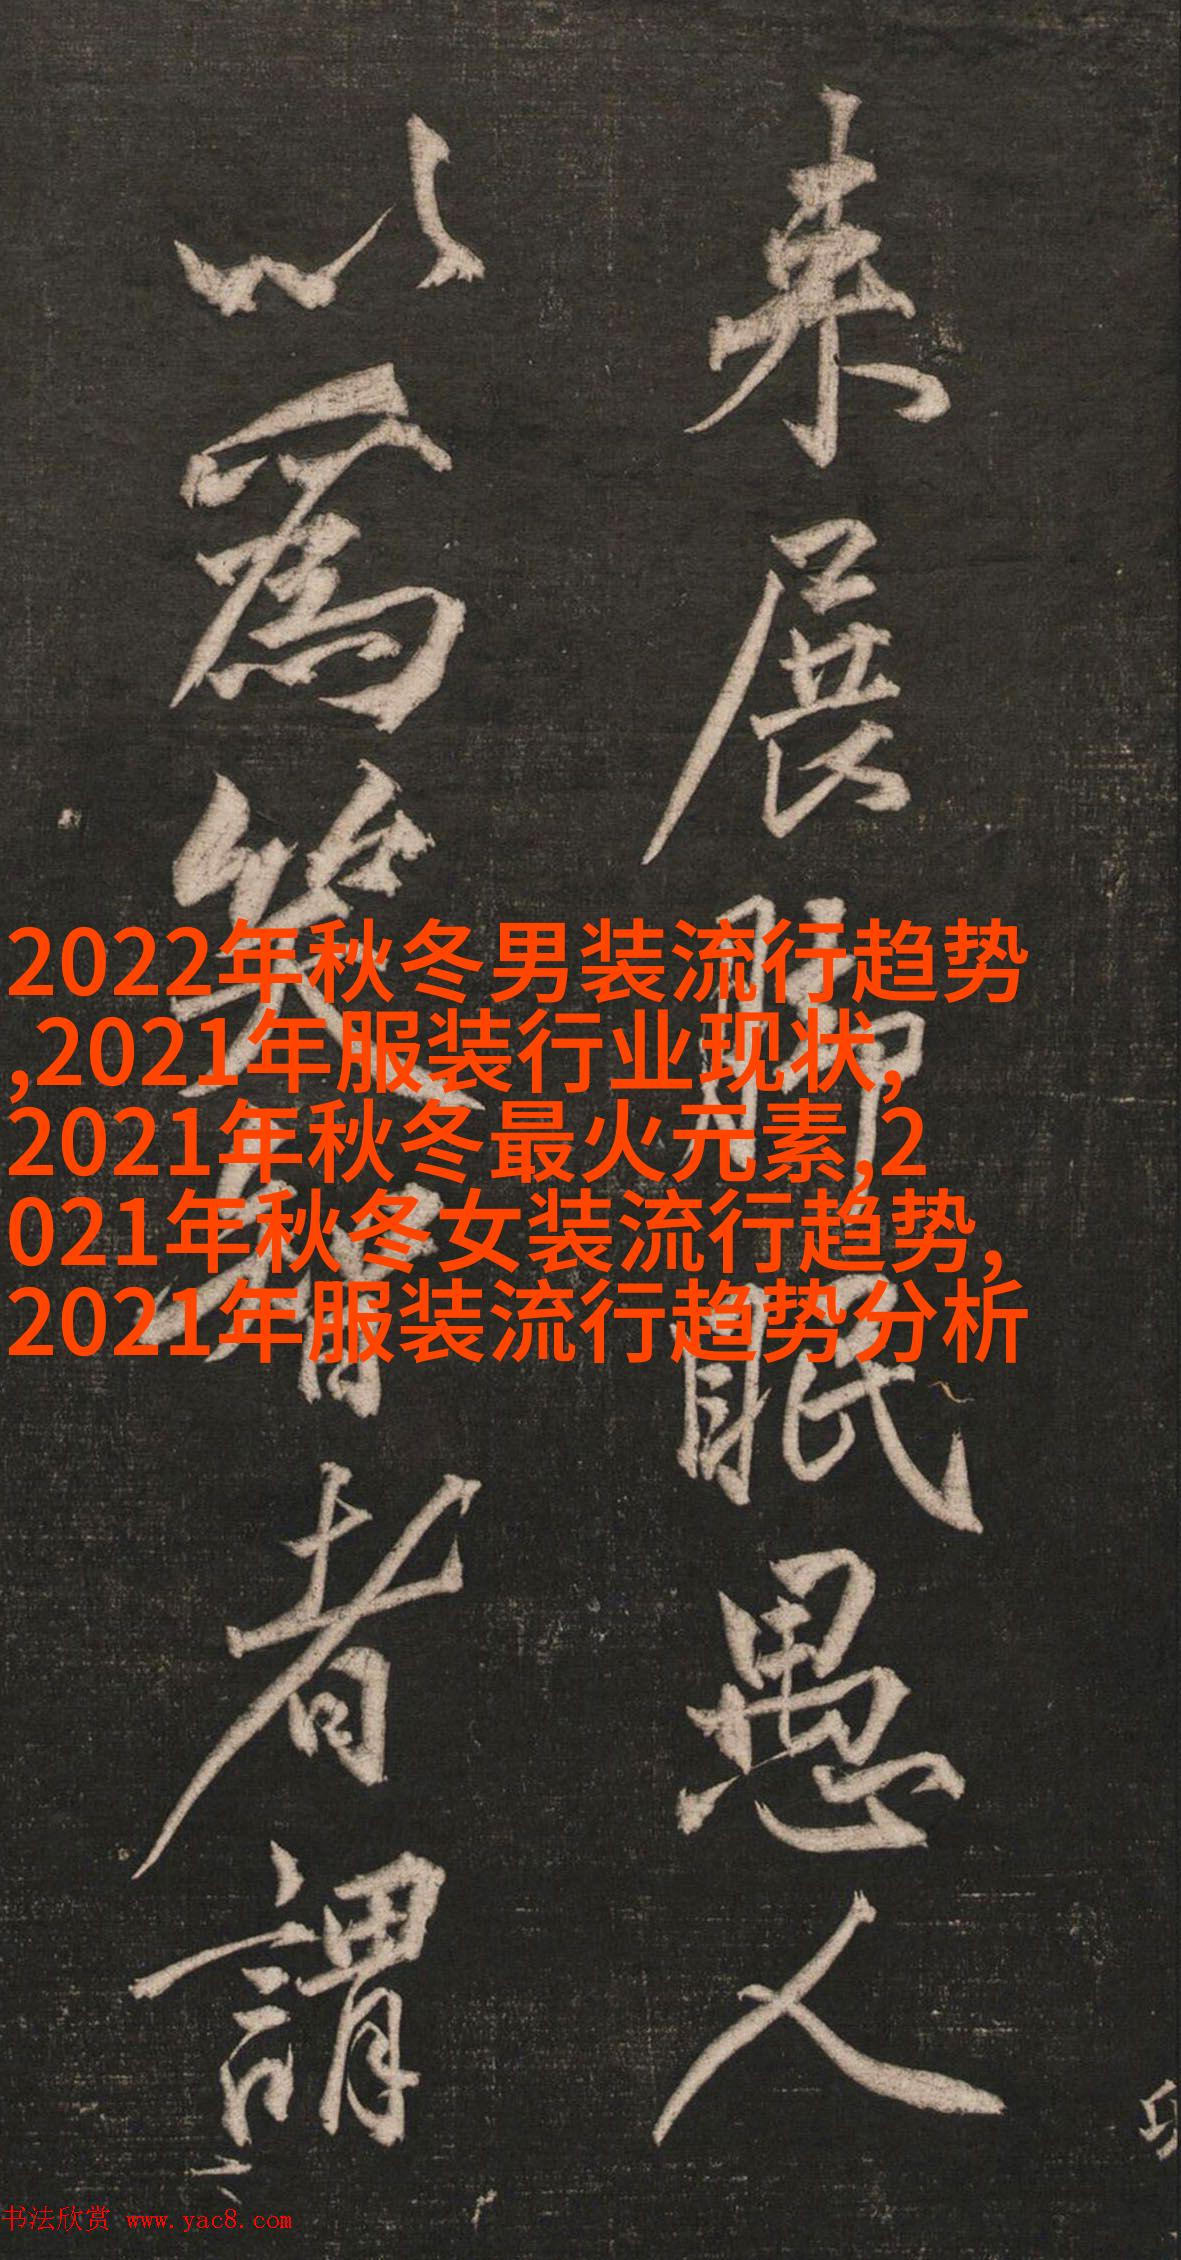 来展脚眠愚人
以為笑智者謂
2022年秋冬男装流行趋势
,2021年服装行业现状,
2021年秋冬最火元素,2
021年秋冬女装流行趋势,
2021年服装流行趋势分析
书法欣赏 www.yac8.com